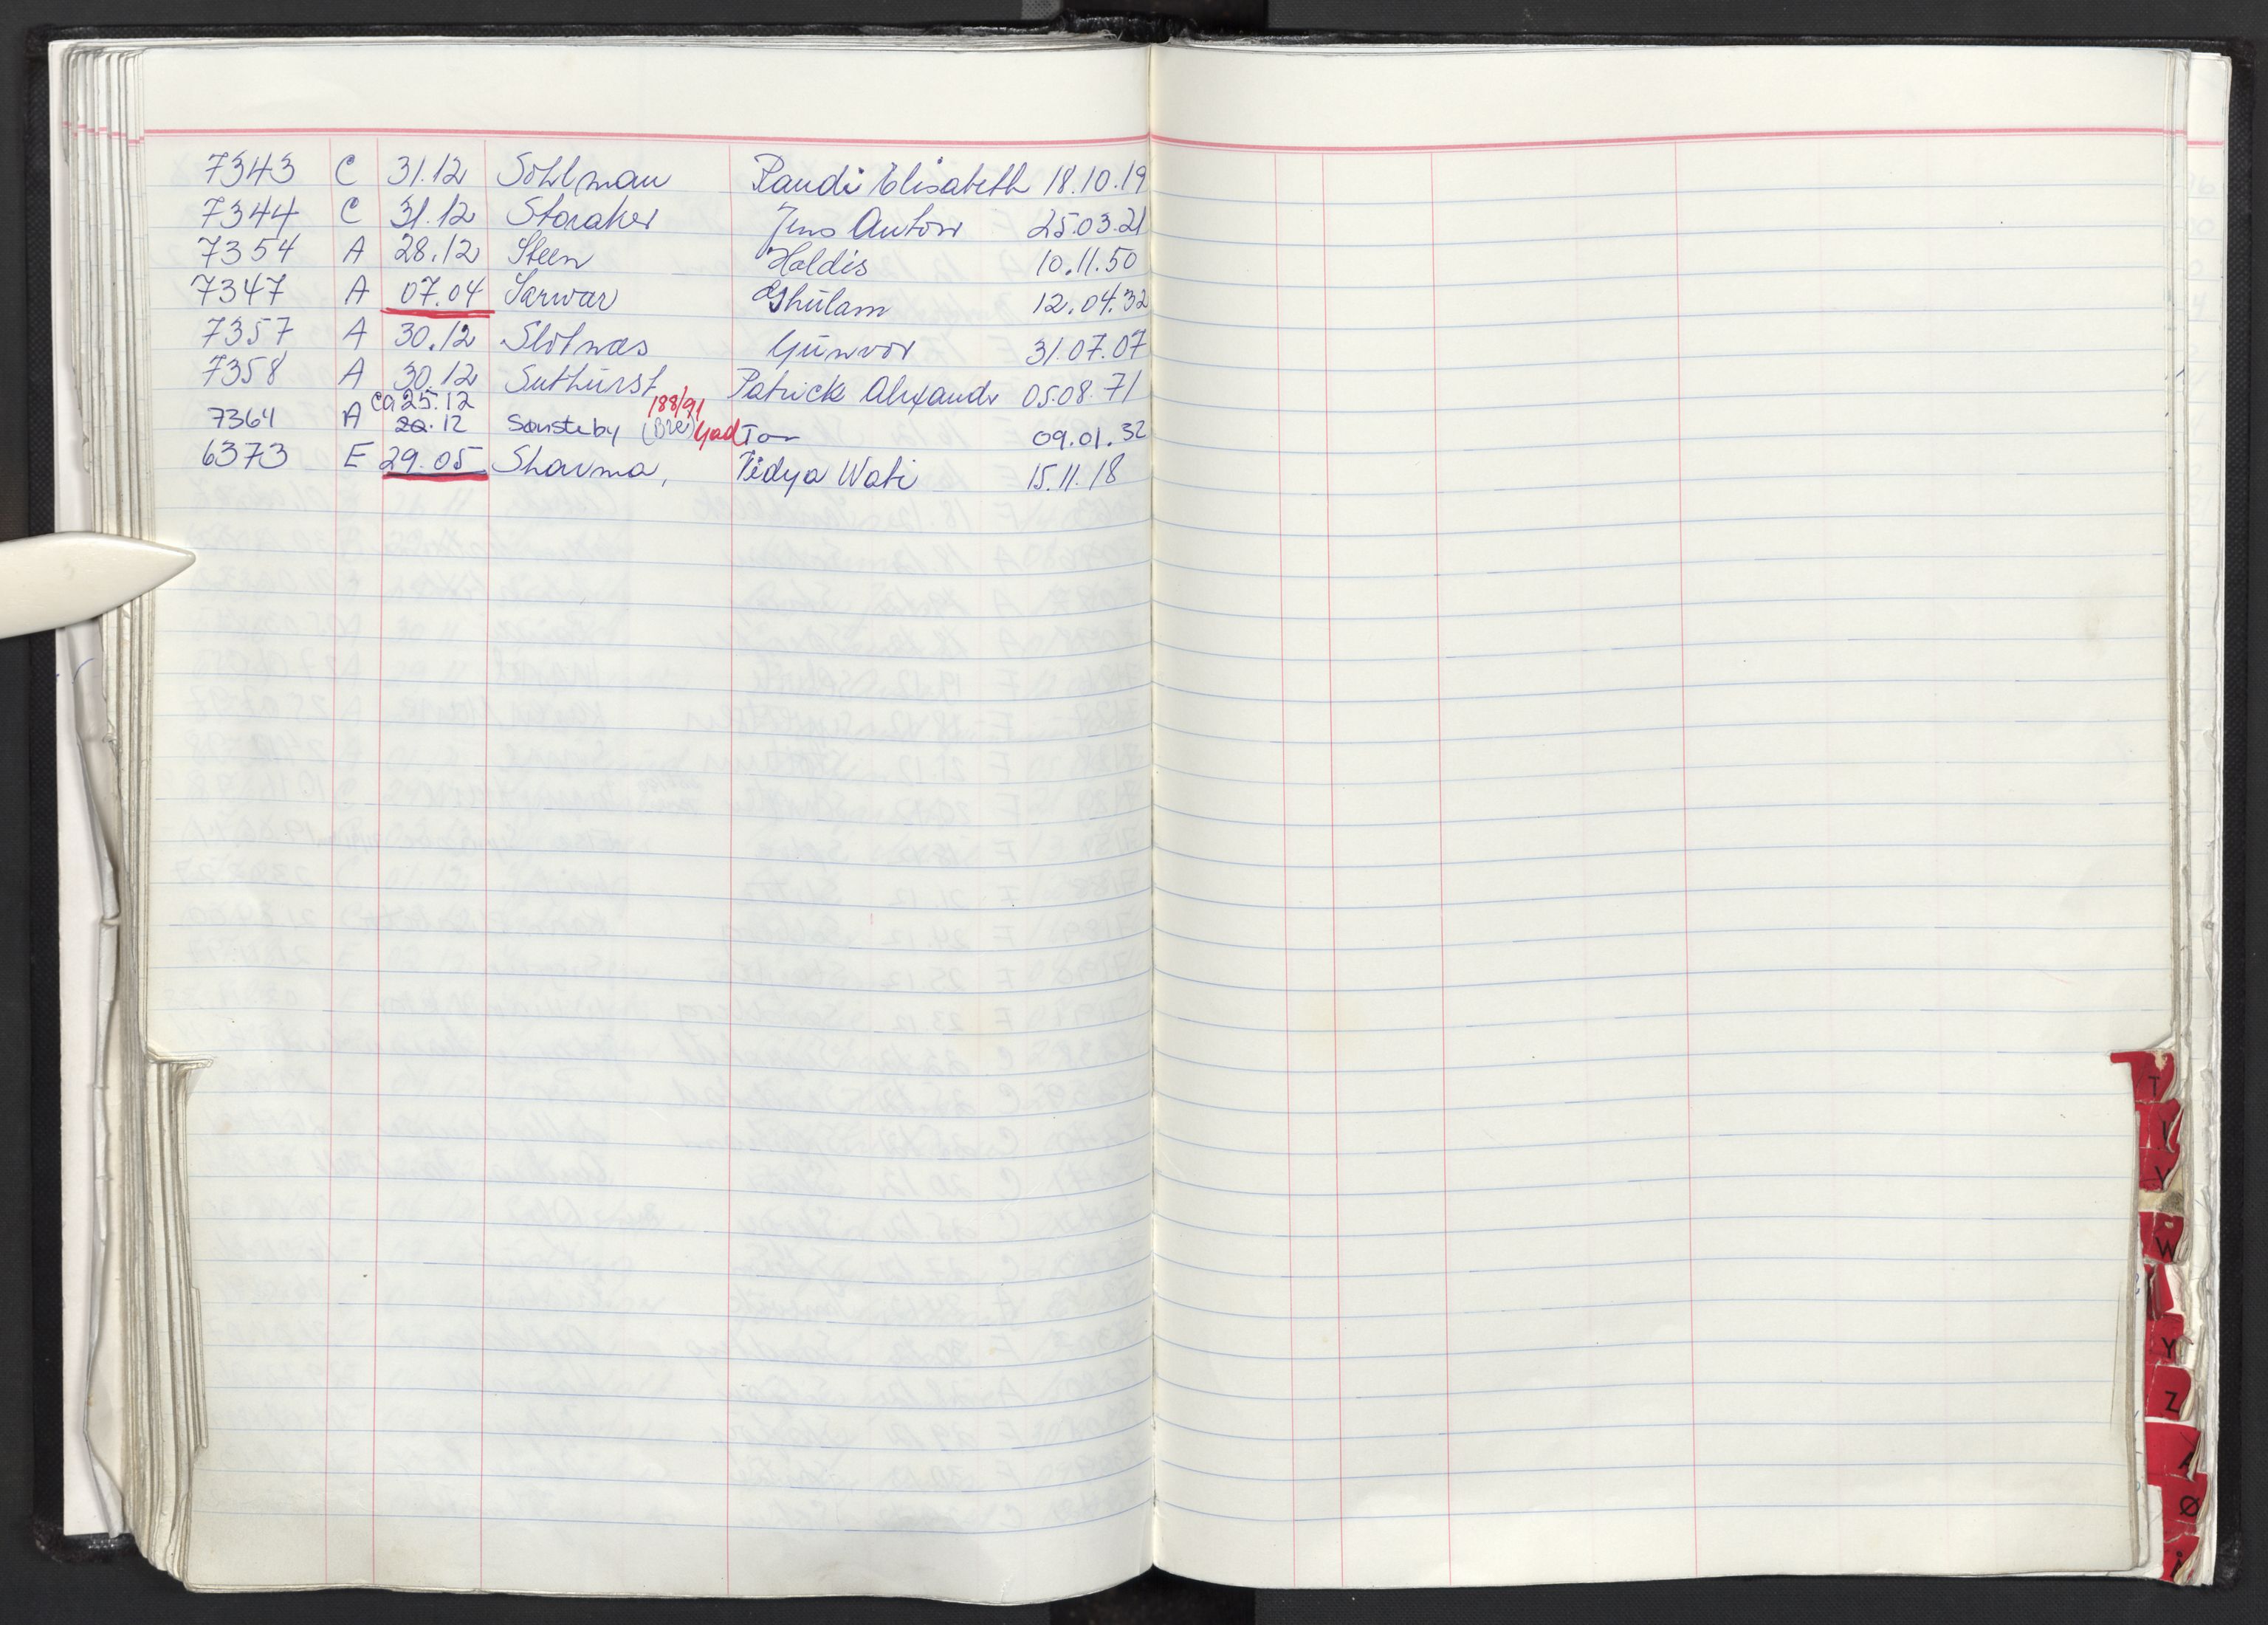 7343 C 31.12 Sohlman Randi Elisabeth 18.10.19
7344 C 31.12 Storaker Jens Anton 25.03.21
7354 A 28.12 Steen Haldis 10.11.50
7347 A 07.04 Sarwar Ghulam 12.04.32
7357 A 30.12 Slotnæs Gunvor 31.07.07
7358 A 30.12 Suthurst Patrick Alexander 05.08.71
ca 25.12 188/91
7364 A 20.12 Sønsteby Gad Tor 09.01.32
6373 E 29.05 Sharma, Vidya Wati 15.11.18
T
V
W
Y
Z
Ø